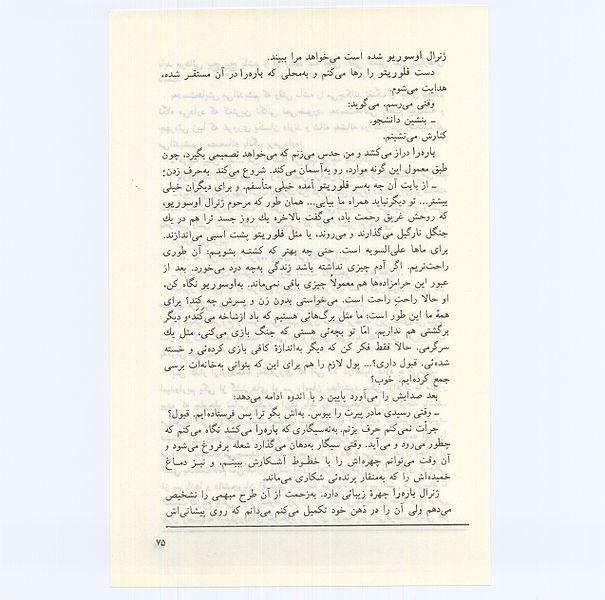 ژنرال اوسوریو شده است می‌خواهد مرا ببیند.
دست فلوریتو را رها می‌کنم و به‌محلی که باره‌را در آن مستقر شده،
هدایت می‌شوم.
وقتی می‌رسم، می‌گوید:
ـ بنشین دانشجو.
کنارش می‌نشینم.
باره‌را دراز می‌کشد و من حدس می‌زنم که می‌خواهد تصمیمی بگیرد، چون
طبق معمول این گونه موارد، رو به‌آسمان می‌کند. شروع می‌کند به‌حرف زدن:
ـ از بابت آن چه به‌سر فلوریتو آمده خیلی متأسفم، و برای دیگران خیلی
بیشتر... تو دیگرنباید همراه ما بیایی... همان طور که مرحوم ژنرال اوسوریو،
که روحش غریق رحمت باد، می‌گفت بالاخره یك روز جسد ترا هم در یك
جنگل نارگیل می‌گذارند و می‌روند، یا مثل فلوریتو پشت اسبی می‌اندازند.
برای ماها علی‌السویه است. حتی چه بهتر که کشته بشویم: آن طوری
راحت‌تریم. اگر آدم چیزی نداشته باشد زندگی به‌چه درد می‌خورد. بعد از
عبور این حرامزاده‌ها هم معمولاً چیزی باقی نمی‌ماند. به‌اوسوریو نگاه کن،
او حالا راحتِ راحت است. می‌خواستی بدون زن و پسرش چه کند؟ برای
همهٔ ما این طور است: ما مثل برگ‌هائی هستیم که باد ازشاخه می‌کَنَد و دیگر
برگشتی هم نداریم. امّا تو بچه‌ئی هستی که جنگ بازی می‌کنی، مثل یك
سرگرمی. حالا فقط فکر کن که دیگر به‌اندازهٔ کافی بازی کرده‌ئی و خسته
شده‌ئی. قبول داری؟... پول لازم را هم برای این که بتوانی به‌خانه‌ات برسی
جمع کرده‌ایم. خوب؟
بعد صدایش را می‌آورد پایین و با اندوه ادامه می‌دهد:
ـ وقتی رسیدی مادر پیرت را ببوس. به‌اش بگو ترا پس فرستاده‌ایم. قبول؟
جرأت نمی‌کنم حرف بزنم. به‌ته‌سیگاری که باره‌را می‌کشد نگاه می‌کنم که
چطور می‌رود و می‌آید. وقتی سیگار به‌دهان می‌گذارد شعله پرفروغ می‌شود و
آن وقت می‌توانم چهره‌اش را با خطوط آشکارش ببینم، و نیز دماغ
خمیده‌اش را که به‌منقار پرنده‌ئی شکاری می‌ماند.
ژنرال باره‌را چهرهٔ زیبائی دارد. به‌زحمت از آن طرح مبهمی را تشخیص
می‌دهم ولی آن را در ذهن خود تکمیل می‌کنم می‌دانم که روی پیشانی‌اش
۷۵